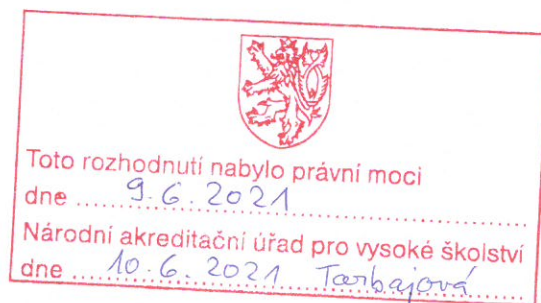 Toto rozhodnutí nabylo právní moci
dne ..... 9. 6. 2021 .....
Národní akreditační úřad pro vysoké školství
dne ..... 10. 6. 2021 Tarbajová .....